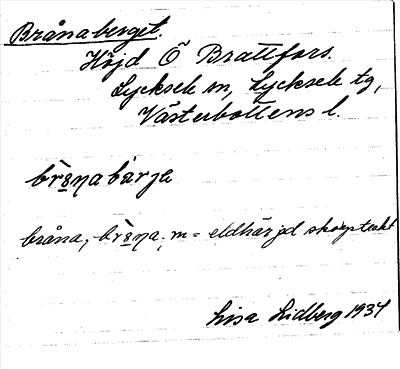 Brånaberget.
Höjd Ö Brattfors.
Lycksele sn, Lycksele tg,
Västerbottens l.
brånabärje
bråna, bråna, m = eldhärjad skogstrakt
Lisa Lidberg 1934